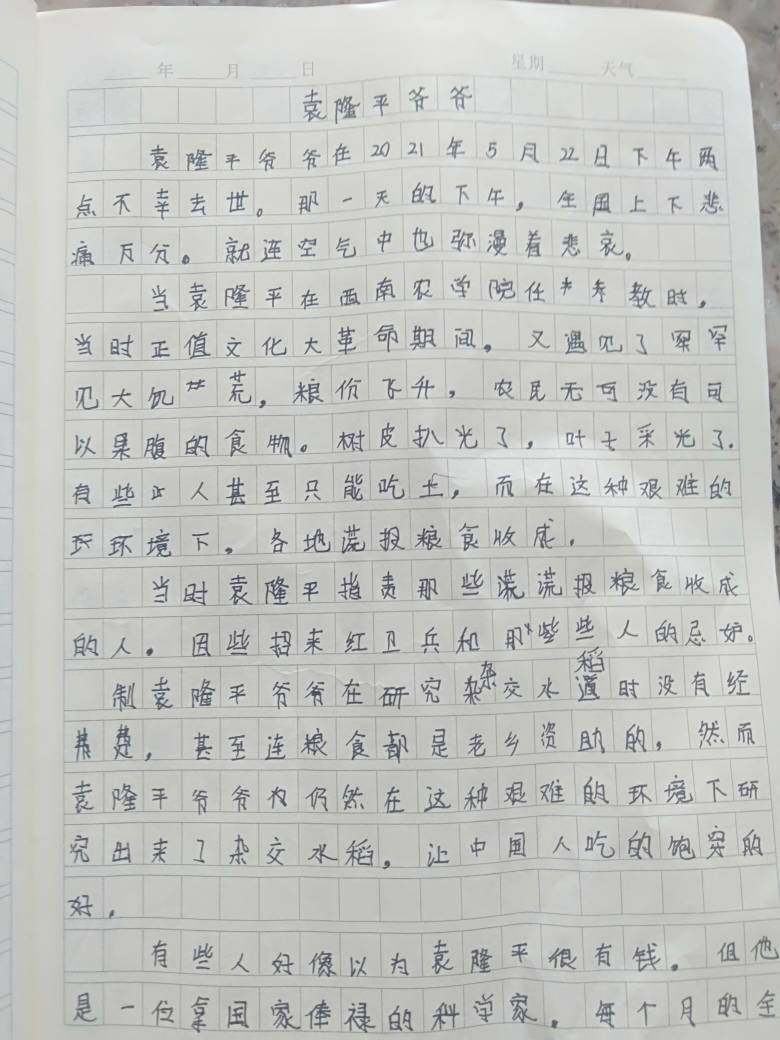 年 月 日 星期 天气
袁隆平爷爷
袁隆平爷爷在2021年5月22日下午两
点不幸去世。那一天的下午，全国上下悲
痛万分。就连空气中也弥漫着悲哀。
当袁隆平在西南农学院任教时，
当时正值文化大革命期间。又遇见了罕
见大饥荒，粮价飞升，农民无可没有可
以果腹的食物。树皮扒光了，叶子采光了.
有些人甚至只能吃土，而在这种艰难的
环境下，各地谎报粮食收成.
当时袁隆平指责那些谎谎报粮食收成
的人。因些招来红卫兵和那些些人的忌妒。
制袁隆平爷爷在研究杂交水稻时没有经
费，甚至连粮食都是老乡资助的，然而
袁隆平爷爷仍然在这种艰难的环境下研
究出来了杂交水稻，让中国人吃的饱穿的
好.
有些人好像以为袁隆平很有钱.但他
是一位拿国家俸禄的科学家.每个月的全